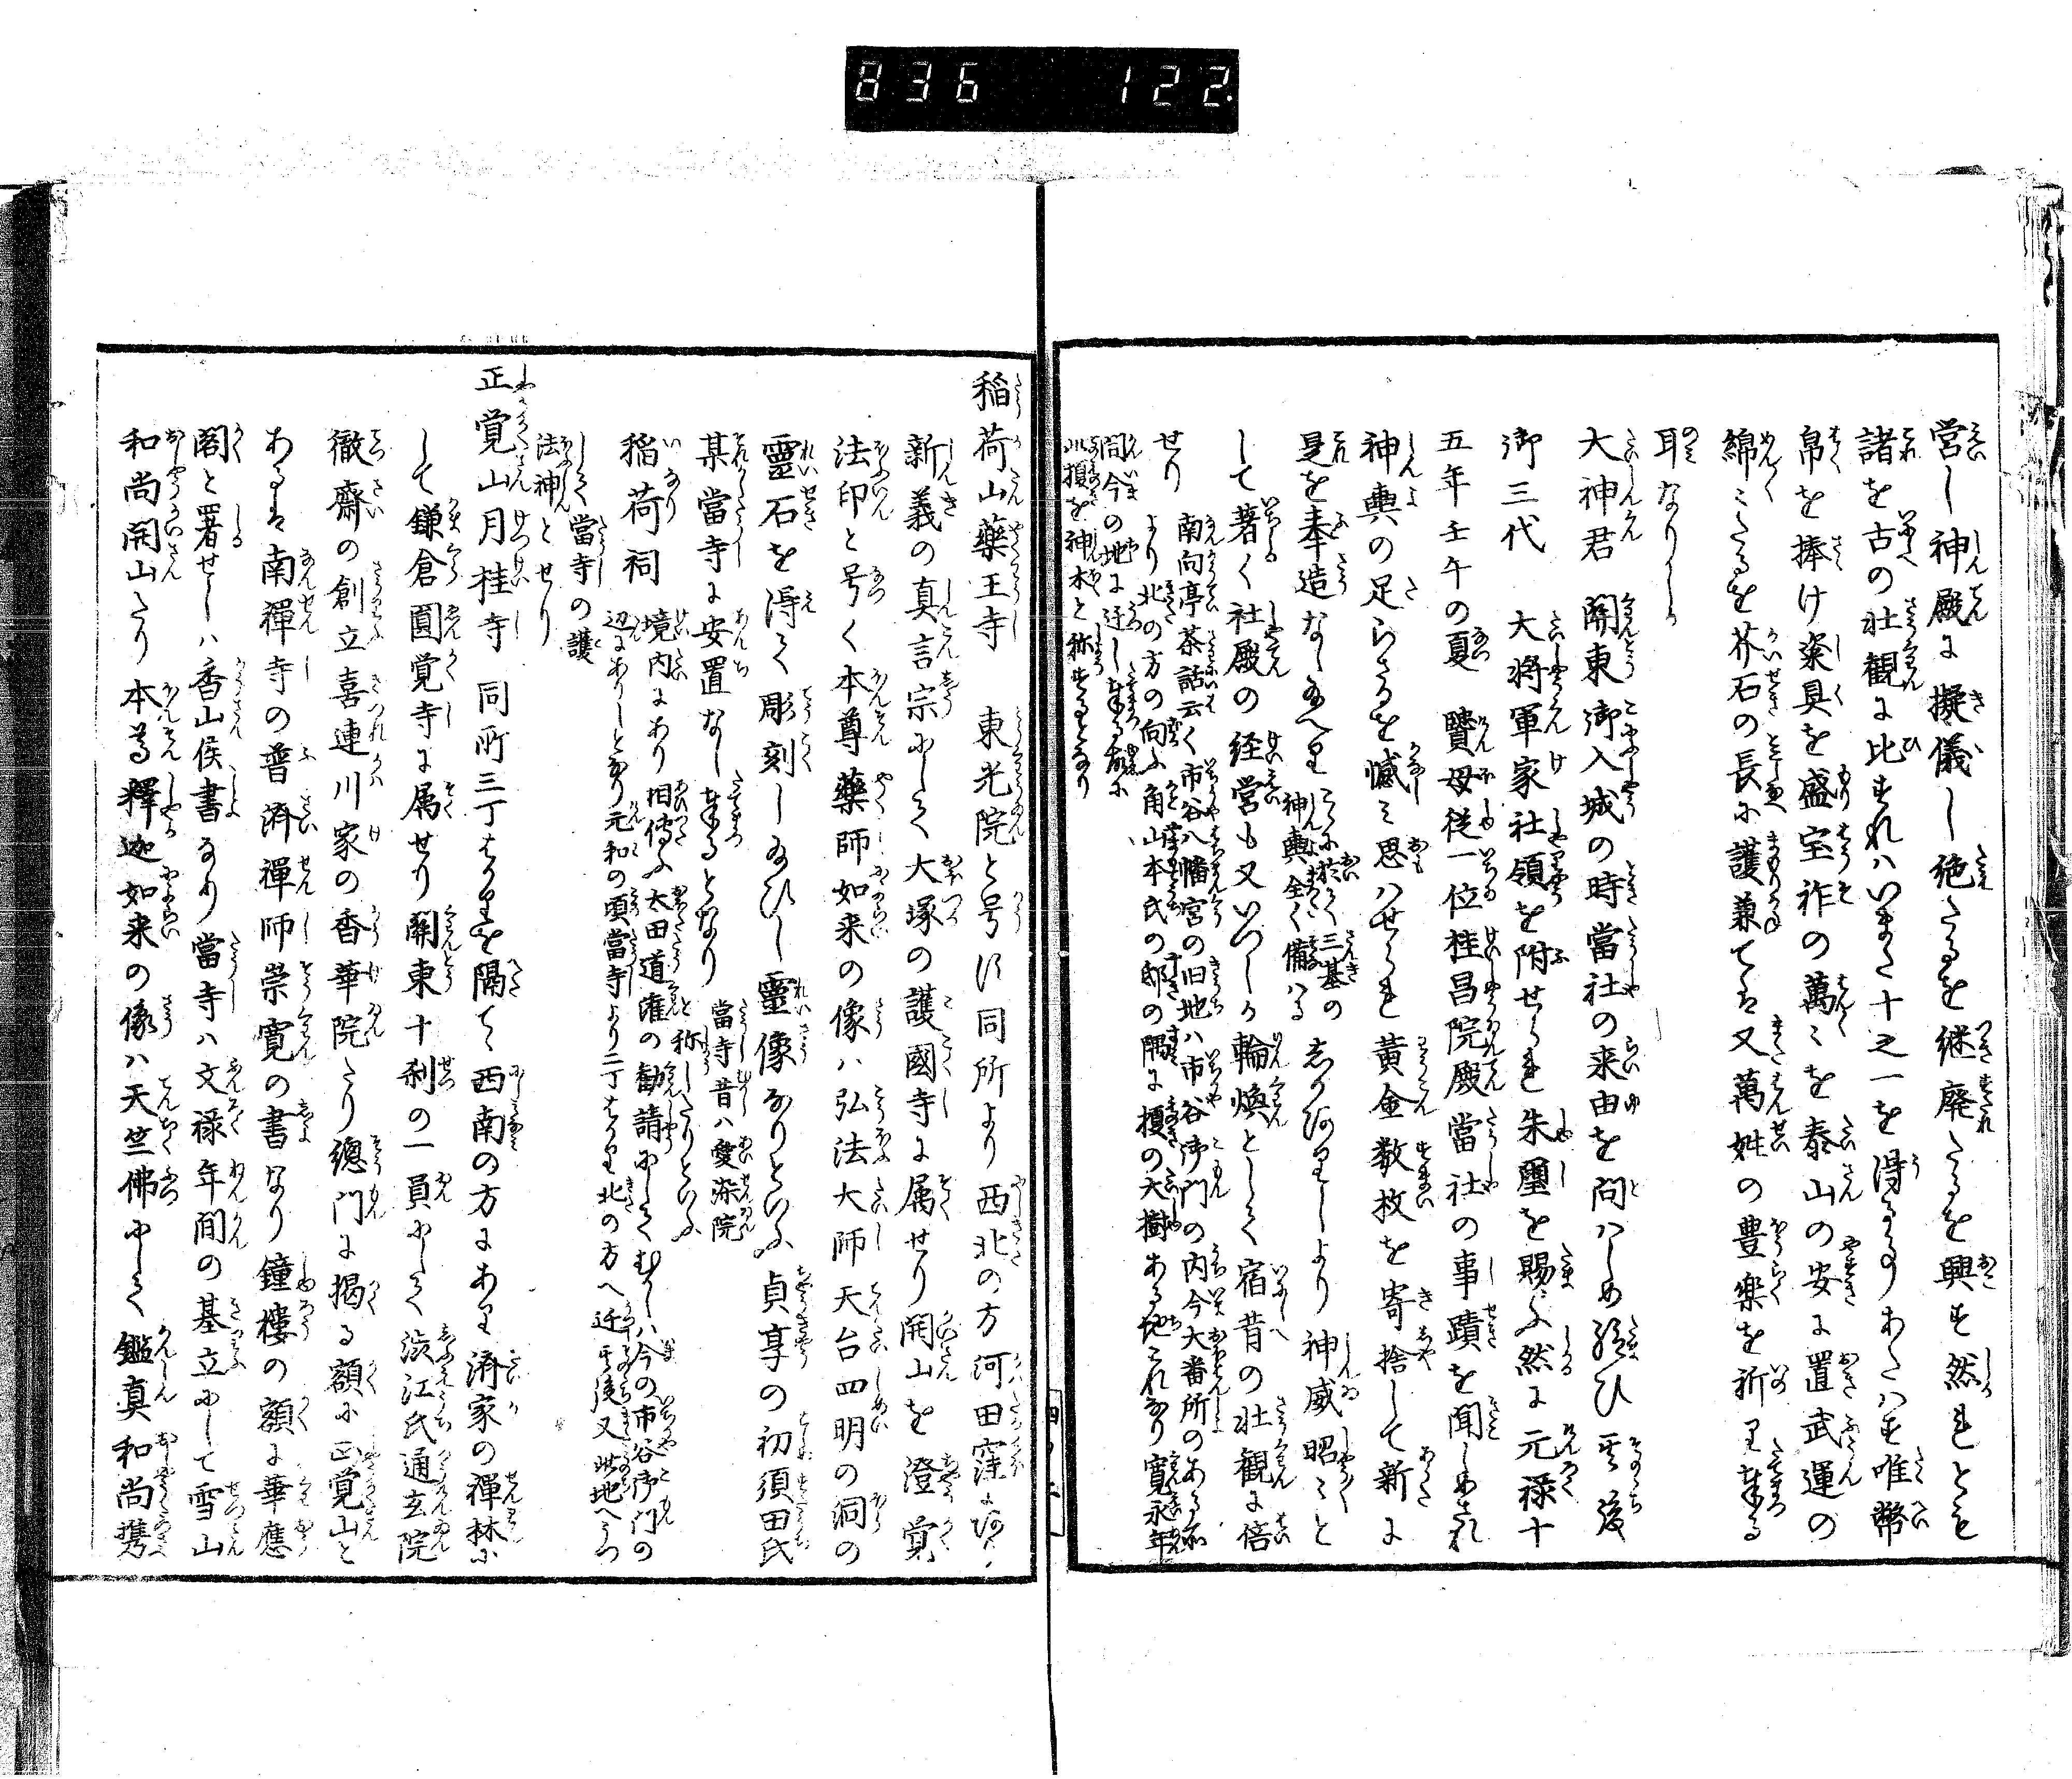 836 122
営し神殿に擬儀し絶たるを継廃たるを興す然れとも
諸を古の壮観に比すれハいまた十之一を得るにあたハす唯幣
帛を捧け粢具を盛宝祚の萬々を泰山の安に置武運の
綿々たるを芥石の長に護兼ては又萬姓の豊楽を祈り奉る
耳なりしか
大神君 關東御入城の時當社の来由を問ハしめ給ひ其後
御三代 大將軍家社領を附せられ朱璽を賜ふ然に元禄十
五年壬午の夏 贒母従一位桂昌院殿當社の事蹟を聞しめされ
神輿の足らさるを憾ミ思ハせられ黄金数枚を寄捨して新に
是を奉造なし給へり こゝに於て三基の
神輿全く備ハる しかありしより神威昭々と
して著く社殿の経営も又いつしか輪煥として宿昔の壮観に倍
せり 南向亭茶話云く市谷八幡宮の旧地ハ市谷御門の内今大番所のある所
より北の方の向ふ角山本氏の邸の隅に榎の大樹ある地これなり寛永年
間今の地に迁し奉る故に
此榎を神木と称するとなり
稲荷山藥王寺 東光院と号す同所より西北の方河田窪にあり
新義の真言宗にして大塚の護國寺に属せり開山を澄覚
法印と号く本尊藥師如来の像ハ弘法大師天台四明の洞の
靈石を得て彫刻し給ひし靈像なりといふ貞享の初須田氏
某當寺に安置なし奉るとなり 當寺昔ハ愛染院
と称したりといふ
稲荷祠 境内にあり相傳ふ太田道灌の勧請にしてむかしハ今の市谷御門の
辺にありしとなり元和の頃當寺より二丁はかり北の方へ迁其後又此地へうつ
して當寺の護
法神とせり
正覚山月桂寺 同所三丁はかりを隔て西南の方にあり濟家の禪林に
して鎌倉圓覚寺に属せり關東十刹の一員にして渋江氏通玄院
徹齋の創立喜連川家の香華院たり總門に掲る額に正覚山と
あるは南禪寺の普濟禪師崇寛の書なり鐘樓の額に華應
閣と署せしハ香山侯書なり當寺ハ文禄年間の基立にして雪山
和尚開山たり本尊釋迦如来の像ハ天竺佛にして鑑真和尚携